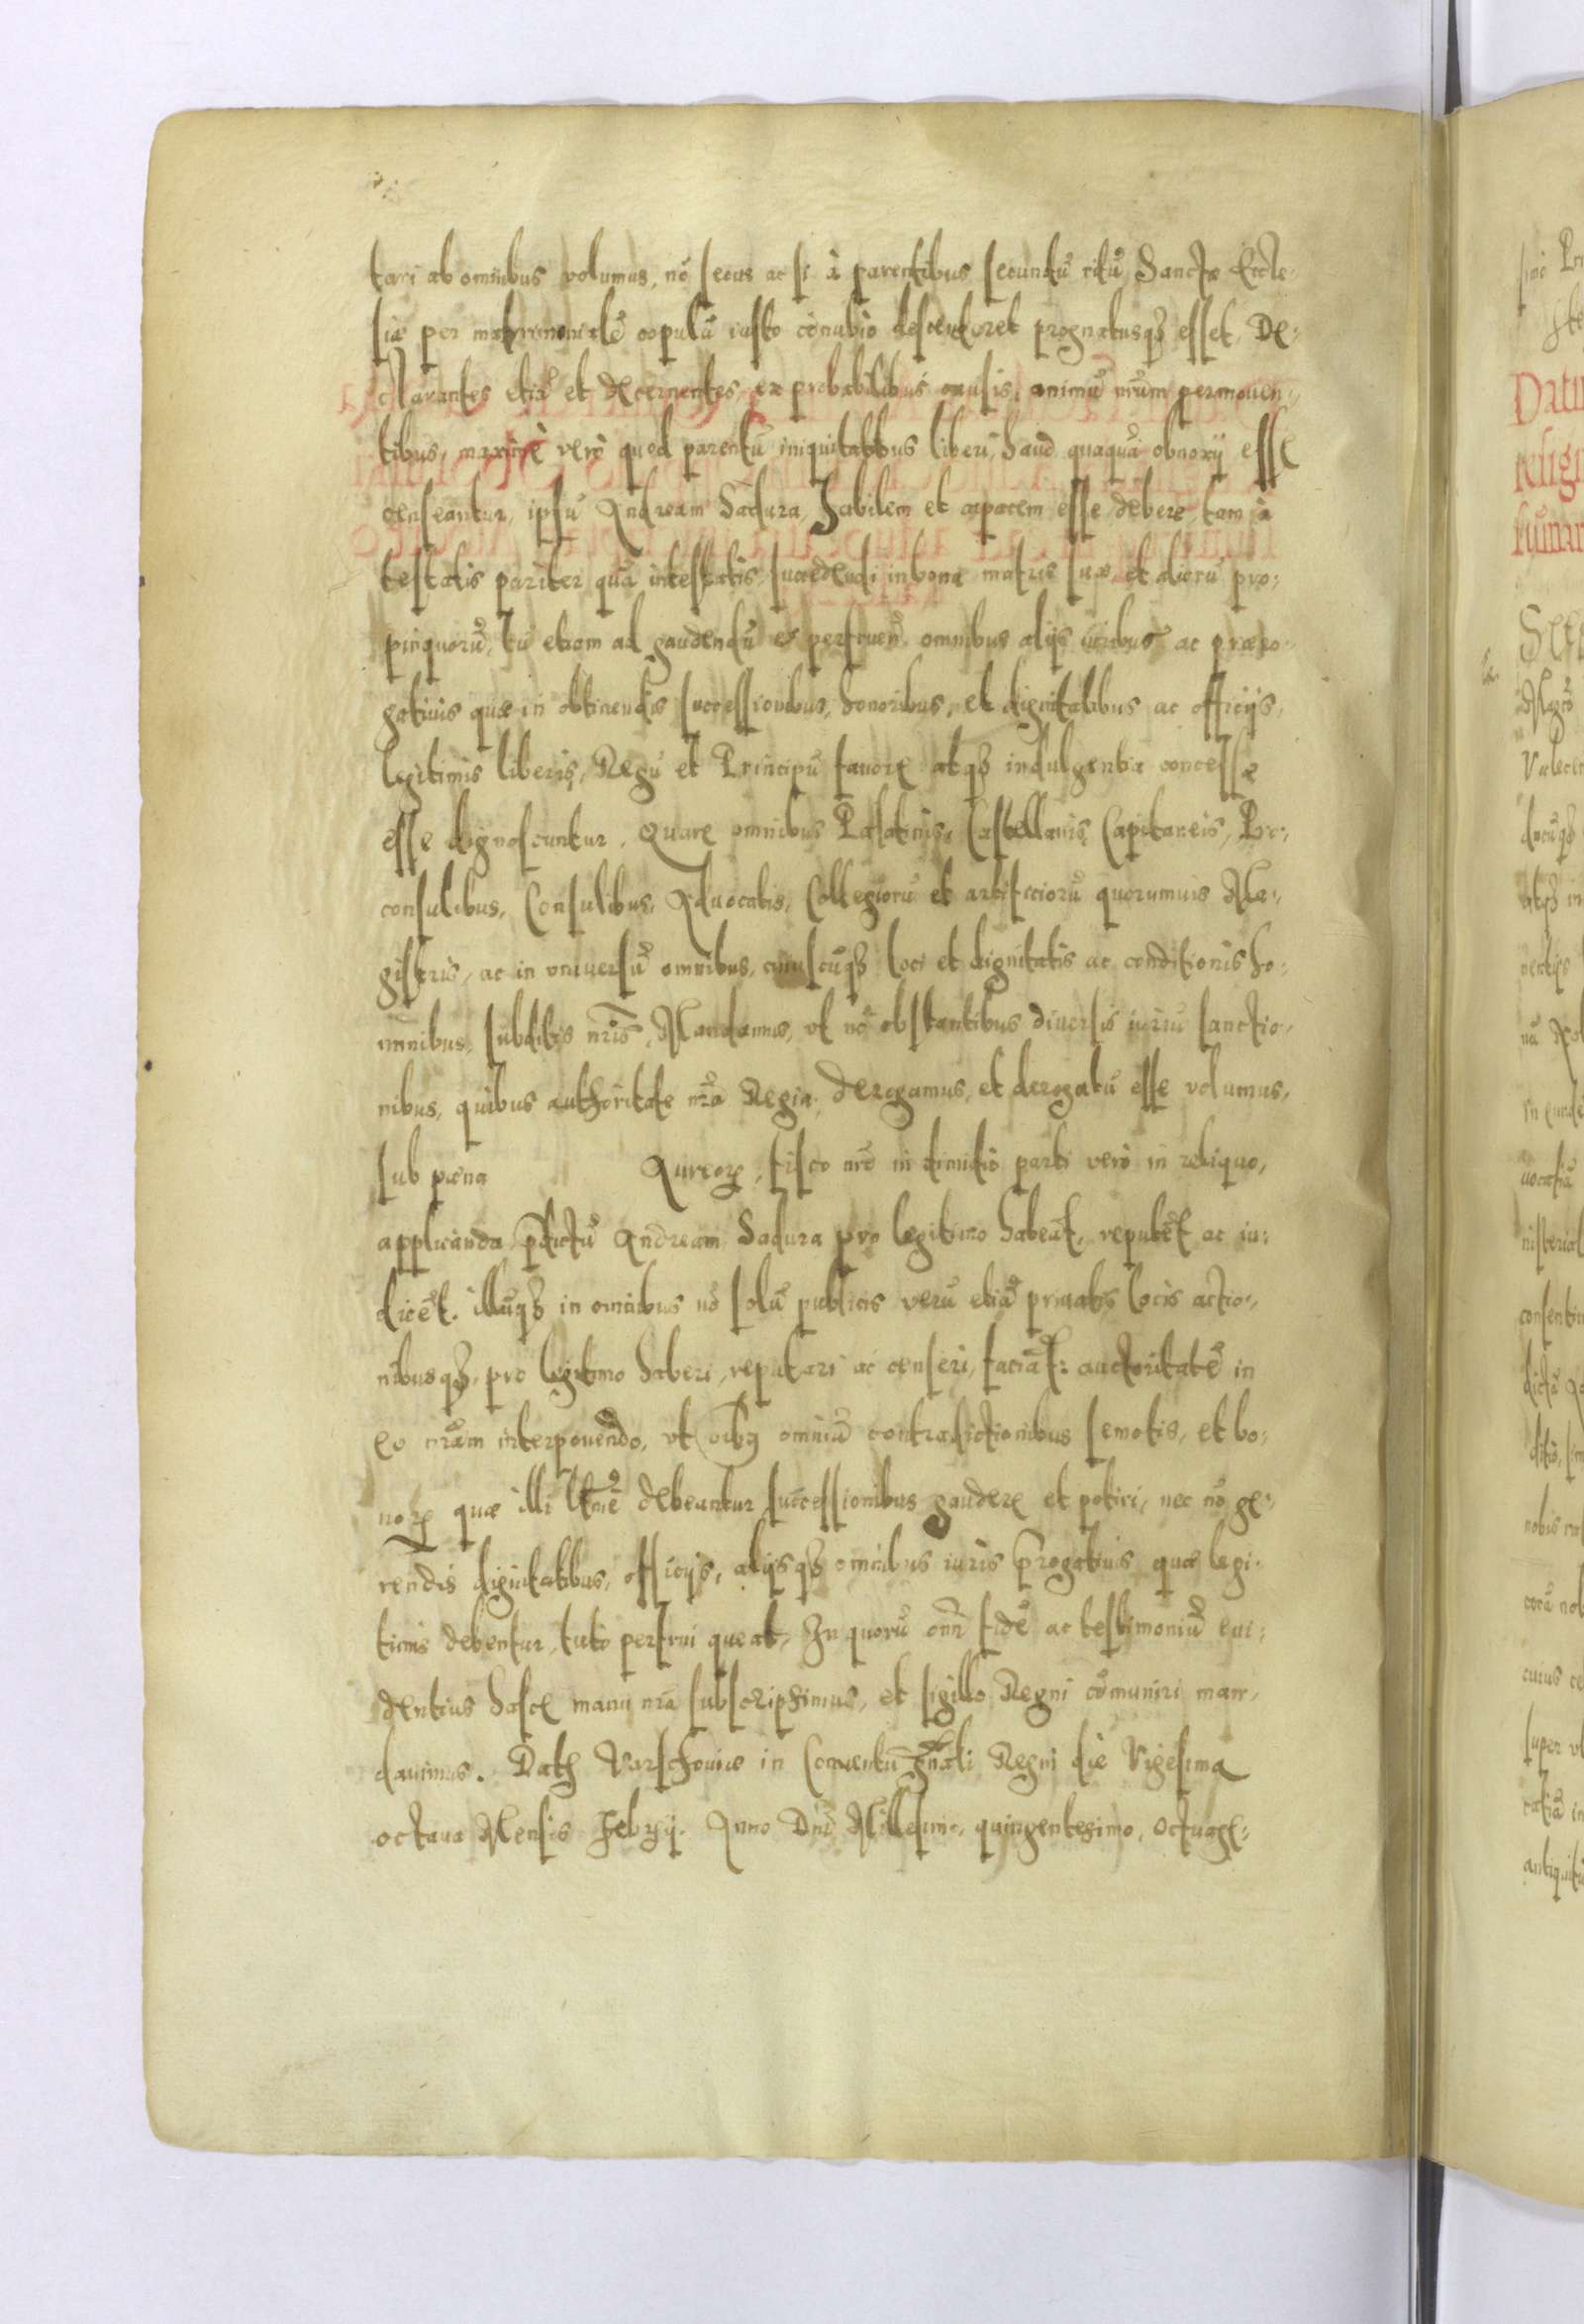 tari ab omnibus volumus, nō secus ac si à parentibus secundū ritū Sanctæ Eccle-
siæ per matrimonialē copulā iusto cōnubio descenderet prognatusqȝ esset, De-
clarantes etiā et decernentes, ex probabilibus causis, animū nr̄um permouen-
tibus, maximè verò quod parentū iniquitatibus liberi, haud quaquā obnoxij esse
censeantur, ipsū Andream Sadura, habilem et capacem esse debere, tam à
testatis pariter quā intestatis, succedendi in bona matris suæ, et aliorū pro-
pinquorū, tū etiam ad gaudendū et perfruend̄ omnibus alijs iuribus ac præro-
gatiuis quæ in obtinendis successionibus, honoribus, et dignitatibus ac officijs,
legitimis liberis, Regū et Principū fauore atqȝ indulgentia concesse
esse dignoscuntur. Quare omnibus Palatinis, Castellanis, Capitaneis, Pro-
consulibus, Consulibus, Aduocatis, Collegiorū et artificiorū quorumuis Ma-
gistris, ac in vniuersū omnibus, cuiuscūqȝ loci et dignitatis ac conditionis ho-
minibus, subditis nr̄is, Mandamus, vt nō obstantibus diuersis iuriū sanctio-
nibus, quibus authoritate nr̄a Regia, derogamus, et derogatū esse volumus,
sub pæna Aureoꝝ, fisco nr̄o in dimidio parti verò in reliquo,
applicanda, p̄dictū Andream Sadura pro legitimo habeāt, reputēt ac iu-
dicēt. illūqȝ in omnibus nō solū publicis verū etiā priuatis locis actio-
nibusqȝ, pro legitimo haberi, reputari ac censeri, faciāt: auctoritatē in
eo nr̄am interponendo, vt oībꝰ omniū contradictionibus semotis, et bo-
noꝝ quæ illi ltīmē debeantur successionibus gaudere et potiri, nec nō ge-
rendis dignitatibus, officijs, alijsqȝ omnibus iuris p̄rogatiuis quæ legi-
timis debentur, tuto perfrui queat. In quorū om̄ fidē ac testimoniū eui-
dentius hasce manu nr̄a subscripsimus, et sigillo Regni cōmuniri man-
dauimus. Datꝭ Varschouiæ in Conuentū gn̄ali Regni die Vigesima
octaua Mensis Febrij. Anno Dnī Millesimo, quingentesimo, octuage-